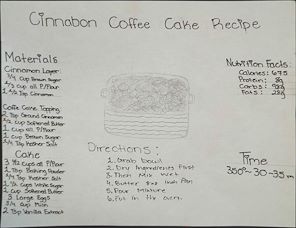 Cinnabon Coffee Cake Recipe
Materials
Cinnamon Layer:
3/4 Cup Brown Sugar
1/3 cup all P/Flour
1 1/2 Tsp Cinnamon
Coffe Cake Topping
2 Tsp Ground Cinnamon
1/2 Cup Softened Butter
1 Cup all P/Flour
1 Cup Brown Sugar
1/4 Tsp Kosher Salt
Cake
3 1/2 cups all P/Flour
1 Tsp Baking Powder
3/4 Tsp Kosher Salt
1 1/2 Cups White Sugar
1 Cup Softened Butter
3 Large Eggs
3/4 Cup Milk
2 Tsp Vanilla Extract
Directions:
1. Grab bowl
2. Dry Ingredients First
3. Then Mix Wet
4. Butter Inch Pan
5. Pour Mixture
6. Put In the oven.
Nutrition Facts:
Calories: 675
Protein: 8g
Carbs:
Fats:
Time
350°-30-35